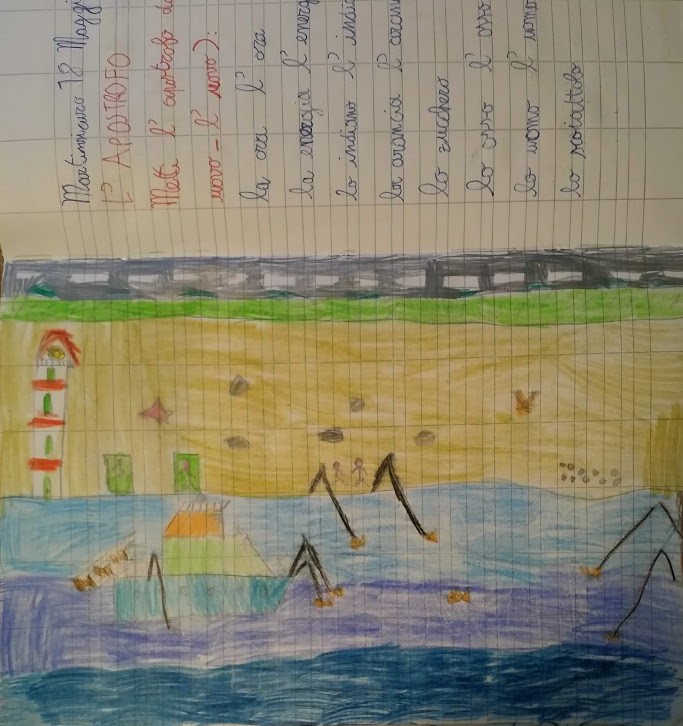 Martinsicuro 18 Maggi
L'APOSTROFO
Metti l'apostrofo do
uovo - l'uovo):
la ora l'ora
la energia l'energ
lo indiano l'india
la arancia l'aranci
lo zucchero
lo orso l'orso
lo uomo l'uomo
lo scoiattolo